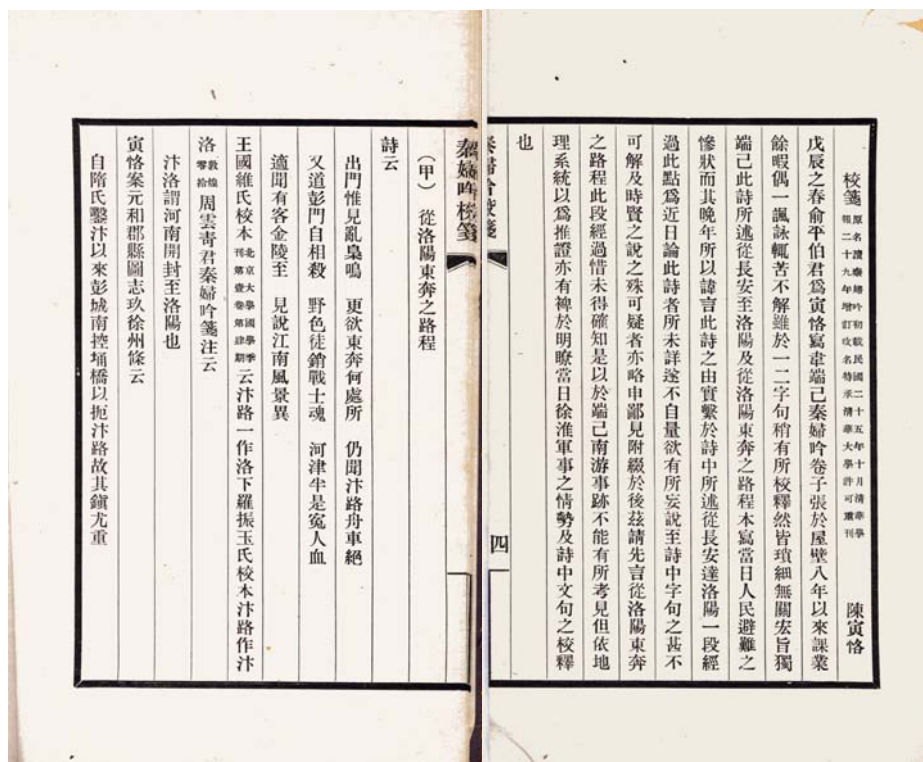 校箋 原名讀秦婦吟初載民國二十五年十月清華學報二十九年增訂改名特承清華大學許可重刊 陳寅恪
戊辰之春俞平伯君爲寅恪寫韋端己秦婦吟卷子張於屋壁八年以來課業
餘暇偶一諷詠輒苦不解雖於一二字句稍有所校釋然皆瑣細無關宏旨獨
端己此詩所述從長安至洛陽及從洛陽東奔之路程本寫當日人民避難之
慘狀而其晚年所以諱言此詩之由實繫於詩中所述從長安達洛陽一段經
過此點爲近日論此詩者所未詳遂不自量欲有所妄說至詩中字句之甚不
可解及時賢之說之殊可疑者亦略申鄙見附綴於後茲請先言從洛陽東奔
之路程此段經過惜未得確知是以於端己南游事跡不能有所考見但依地
理系統以爲推證亦有裨於明瞭當日徐淮軍事之情勢及詩中文句之校釋
也
秦婦吟校箋
四
秦婦吟校箋
(甲) 從洛陽東奔之路程
詩云
出門惟見亂梟鳴 更欲東奔何處所 仍聞汴路舟車絕
又道彭門自相殺 野色徒銷戰士魂 河津半是冤人血
適聞有客金陵至 見說江南風景異
王國維氏校本 北京大學國學季刊第壹卷第肆期 云汴路一作洛下羅振玉氏校本汴路作汴
洛 敦煌零拾 周雲青君秦婦吟箋注云
汴洛謂河南開封至洛陽也
寅恪案元和郡縣圖志玖徐州條云
自隋氏鑿汴以來彭城南控埇橋以扼汴路故其鎮尤重